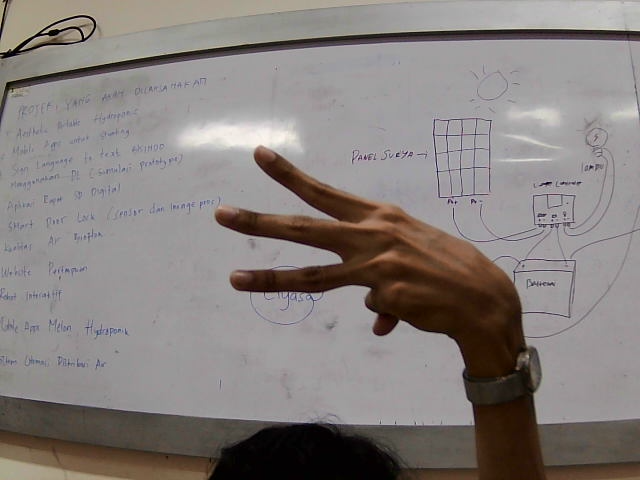 PROJEK YANG AKAN DILAKSANAKAN
Aesthetic Portable Hydroponic
Mobile Apps untuk Stunting
Sign Language to text BISINDO
Menggunakan DL (simulasi prototype)
Aplikasi Rapor SD Digital
Smart Door Lock (sensor dan image pros)
Kualitas Air Bioflok
Website Pertanian
Robot Interaktif
Mobile Apps Melon Hydroponik
Sistem Otomasi Distribusi Air
Elyasa
PANEL SURYA →
PV+ PV-
LAMPU
BATERAI